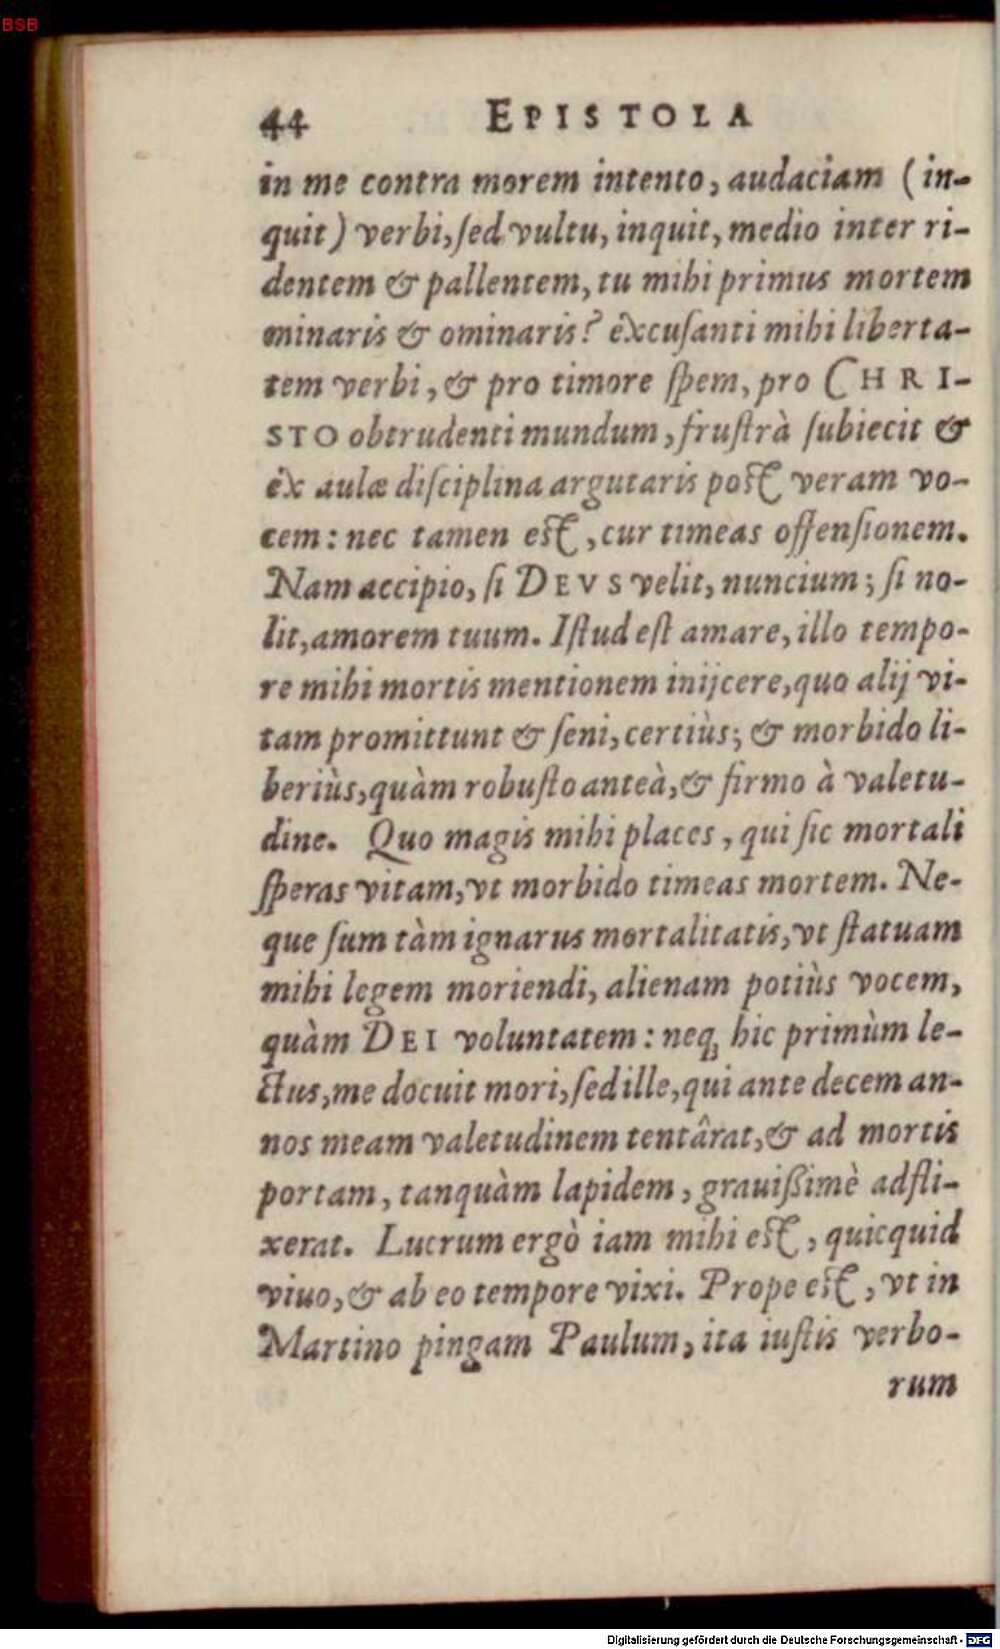 BSB
44 EPISTOLA
in me contra morem intento, audaciam (in-
quit) verbi, ſed vultu, inquit, medio inter ri-
dentem & pallentem, tu mihi primus mortem
minaris & ominaris? excuſanti mihi liberta-
tem verbi, & pro timore ſpem, pro CHRI-
STO obtrudenti mundum, fruſtrà ſubiecit &
ex aulæ diſciplina argutaris poſt veram vo-
cem: nec tamen eſt, cur timeas offenſionem.
Nam accipio, ſi DEVS velit, nuncium; ſi no-
lit, amorem tuum. Iſtud eſt amare, illo tempo-
re mihi mortis mentionem inijcere, quo alij vi-
tam promittunt & ſeni, certiùs; & morbido li-
beriùs, quàm robuſto anteà, & firmo à valetu-
dine. Quo magis mihi places, qui ſic mortali
ſperas vitam, vt morbido timeas mortem. Ne-
que ſum tàm ignarus mortalitatis, vt ſtatuam
mihi legem moriendi, alienam potiùs vocem,
quàm DEI voluntatem: neq; hic primùm le-
ctus, me docuit mori, ſed ille, qui ante decem an-
nos meam valetudinem tentârat, & ad mortis
portam, tanquàm lapidem, grauißimè adfli-
xerat. Lucrum ergò iam mihi eſt, quicquid
viuo, & ab eo tempore vixi. Prope eſt, vt in
Martino pingam Paulum, ita iuſtis verbo-
rum
Digitalisierung gefördert durch die Deutsche Forschungsgemeinschaft - DFG